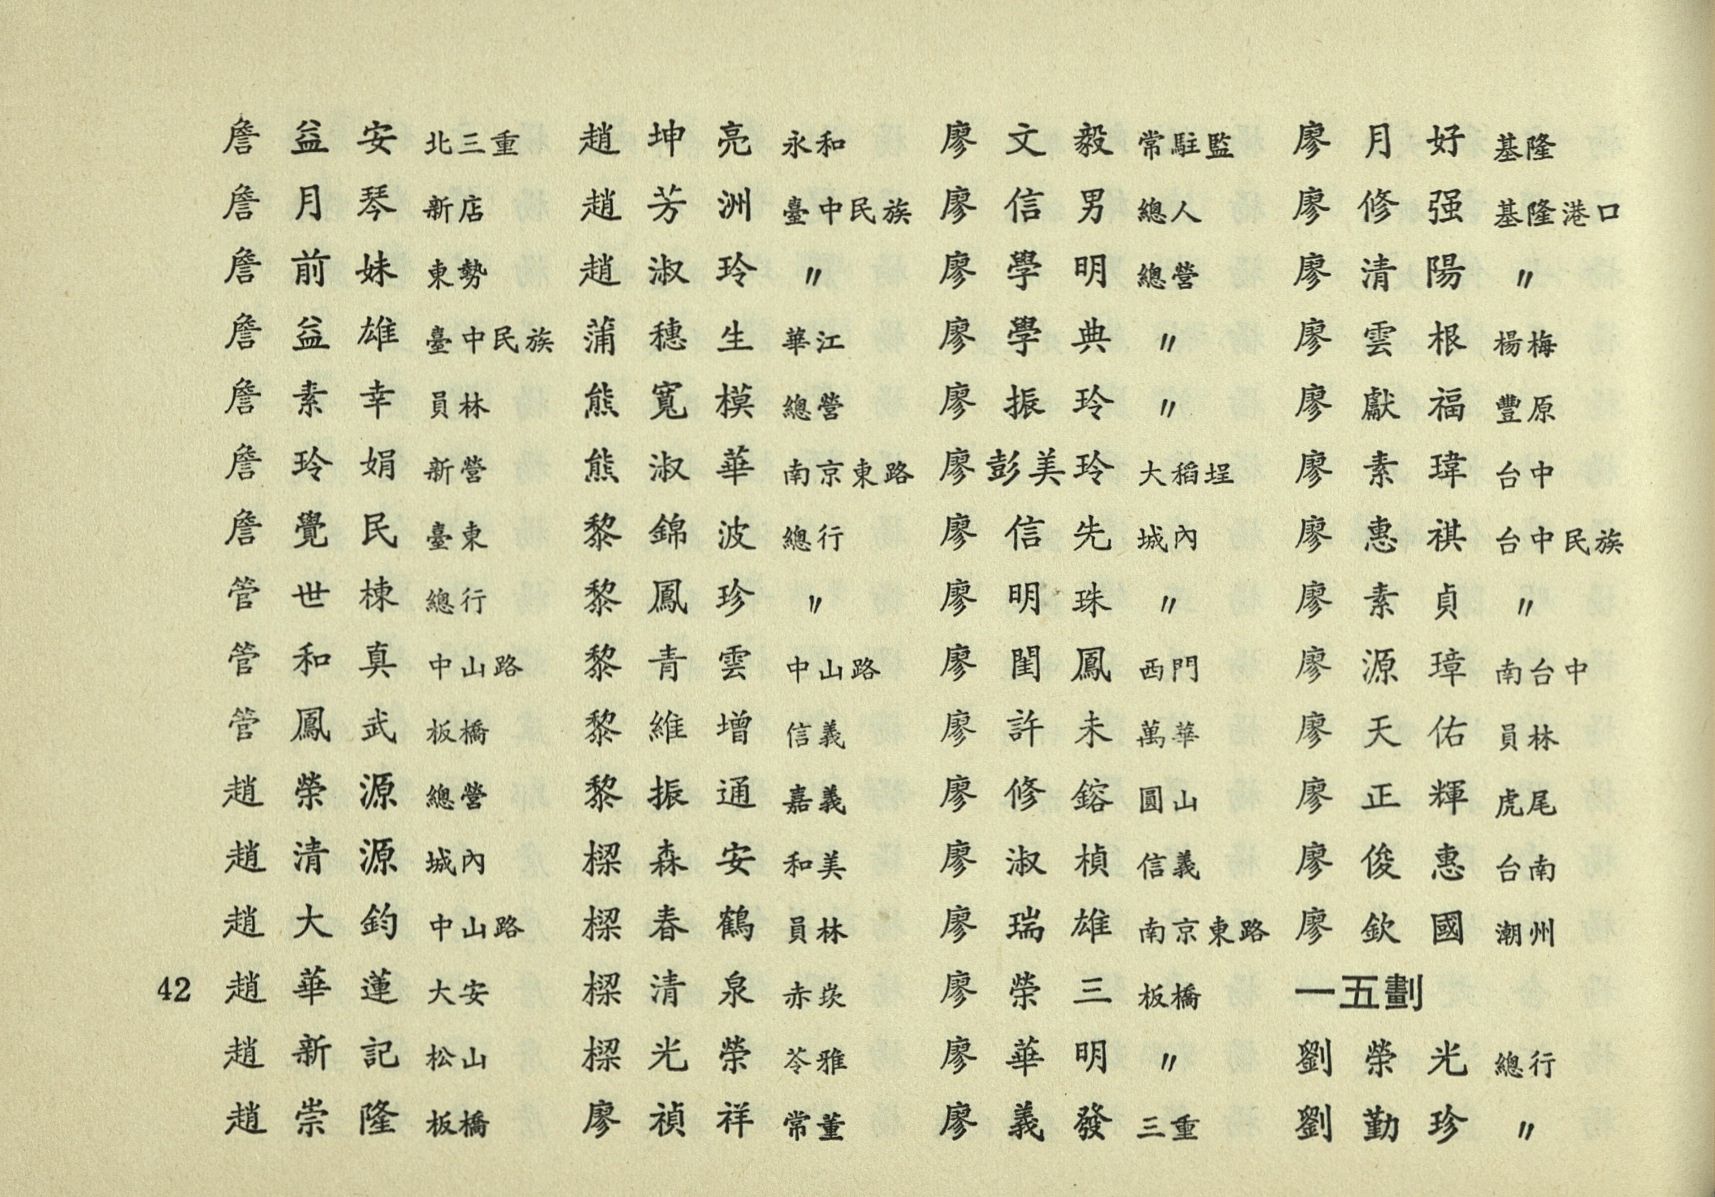 詹益安 北三重
詹月琴 新店
詹前妹 東勢
詹益雄 臺中民族
詹素幸 員林
詹玲娟 新營
詹覺民 臺東
管世棟 總行
管和真 中山路
管鳳武 板橋
趙榮源 總營
趙清源 城內
趙大鈞 中山路
42 趙華蓮 大安
趙新記 松山
趙崇隆 板橋
趙坤亮 永和
趙芳洲 臺中民族
趙淑玲 〃
蒲穗生 華江
熊寬模 總營
熊淑華 南京東路
黎錦波 總行
黎鳳珍 〃
黎青雲 中山路
黎維增 信義
黎振通 嘉義
樑森安 和美
樑春鶴 員林
樑清泉 赤崁
樑光榮 苓雅
廖禎祥 常董
廖文毅 常駐監
廖信男 總人
廖學明 總營
廖學典 〃
廖振玲 〃
廖彭美玲 大稻埕
廖信先 城內
廖明珠 〃
廖閨鳳 西門
廖許未 萬華
廖修鎔 圓山
廖淑楨 信義
廖瑞雄 南京東路
廖榮三 板橋
廖華明 〃
廖義發 三重
廖月好 基隆
廖修强 基隆港口
廖清陽 〃
廖雲根 楊梅
廖獻福 豐原
廖素瑋 台中
廖惠祺 台中民族
廖素貞 〃
廖源璋 南台中
廖天佑 員林
廖正輝 虎尾
廖俊惠 台南
廖欽國 潮州
一五劃
劉榮光 總行
劉勤珍 〃